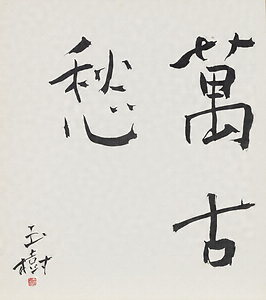 萬古
愁
玉樹